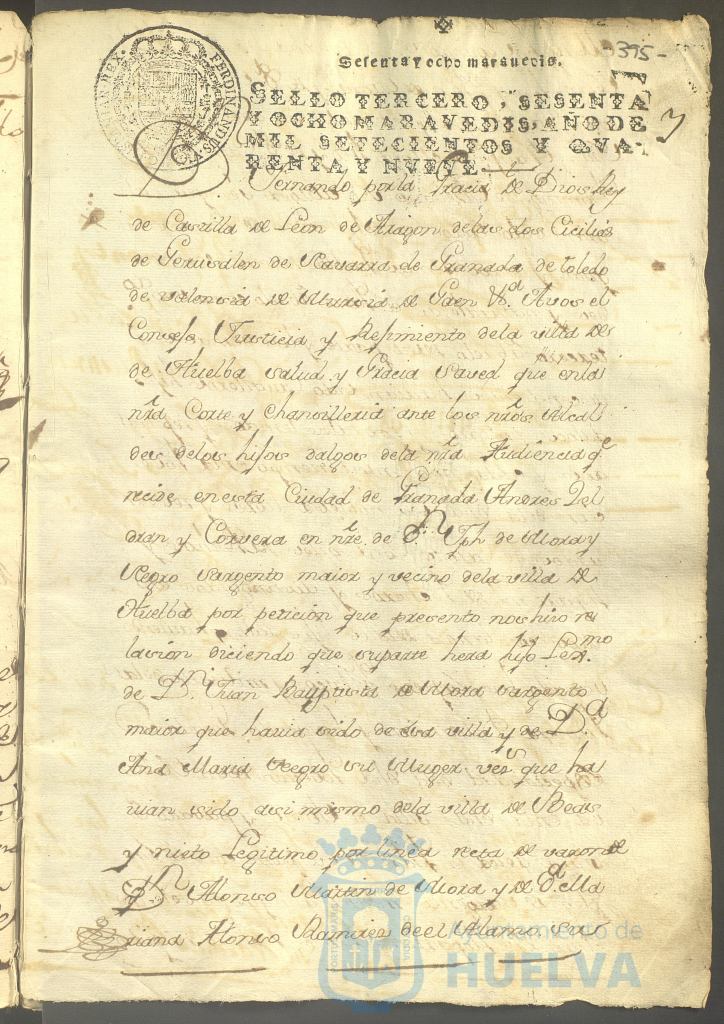 395-
Sesenta y ocho maravedis.
FERDINANDUS
SELLO TERCERO, SESENTA
Y OCHO MARAVEDIS, AÑO DE
MIL SETECIENTOS Y QVA-
RENTA Y NVEVE
Fernando por la Gracia de Dios Rey
de Castilla de Leon de Aragon delas dos Cicilias
de Gerusalen de Navarra de Granada de toledo
de valencia de Murcia de Jaen &ª. Avos el
Consejo Justicia y Regimiento dela villa de
de Huelba salud y Gracia Saved que enla
nrâ Corte y Chansilleria ante los nrôs Alcal
des delos hijos dalgos dela nrâ Audiencia qe
recide en esta Ciudad de Granada Andres Bel
dran y Corvera en nre. de Dn. Jph de Mora y
Negro Sargento maior y vecino dela villa de
Huelba por peticion que presento nos hiso re
lacion diciendo que su parte hera hijo Lexmo.
de Dn. Juan Bauptista de Mora Sargento
maior que havia sido de esa villa y de Dª.
Ana Maria Negro su Muger veºs que ha
vian sido asi mismo dela villa de Beas
y nieto Legitimo por linea recta de varon de
Dn Alonso Martin de Mora y de Dª. Ma
riana Alonso Ramires de el Alamo sus
Ayuntamiento de
HUELVA